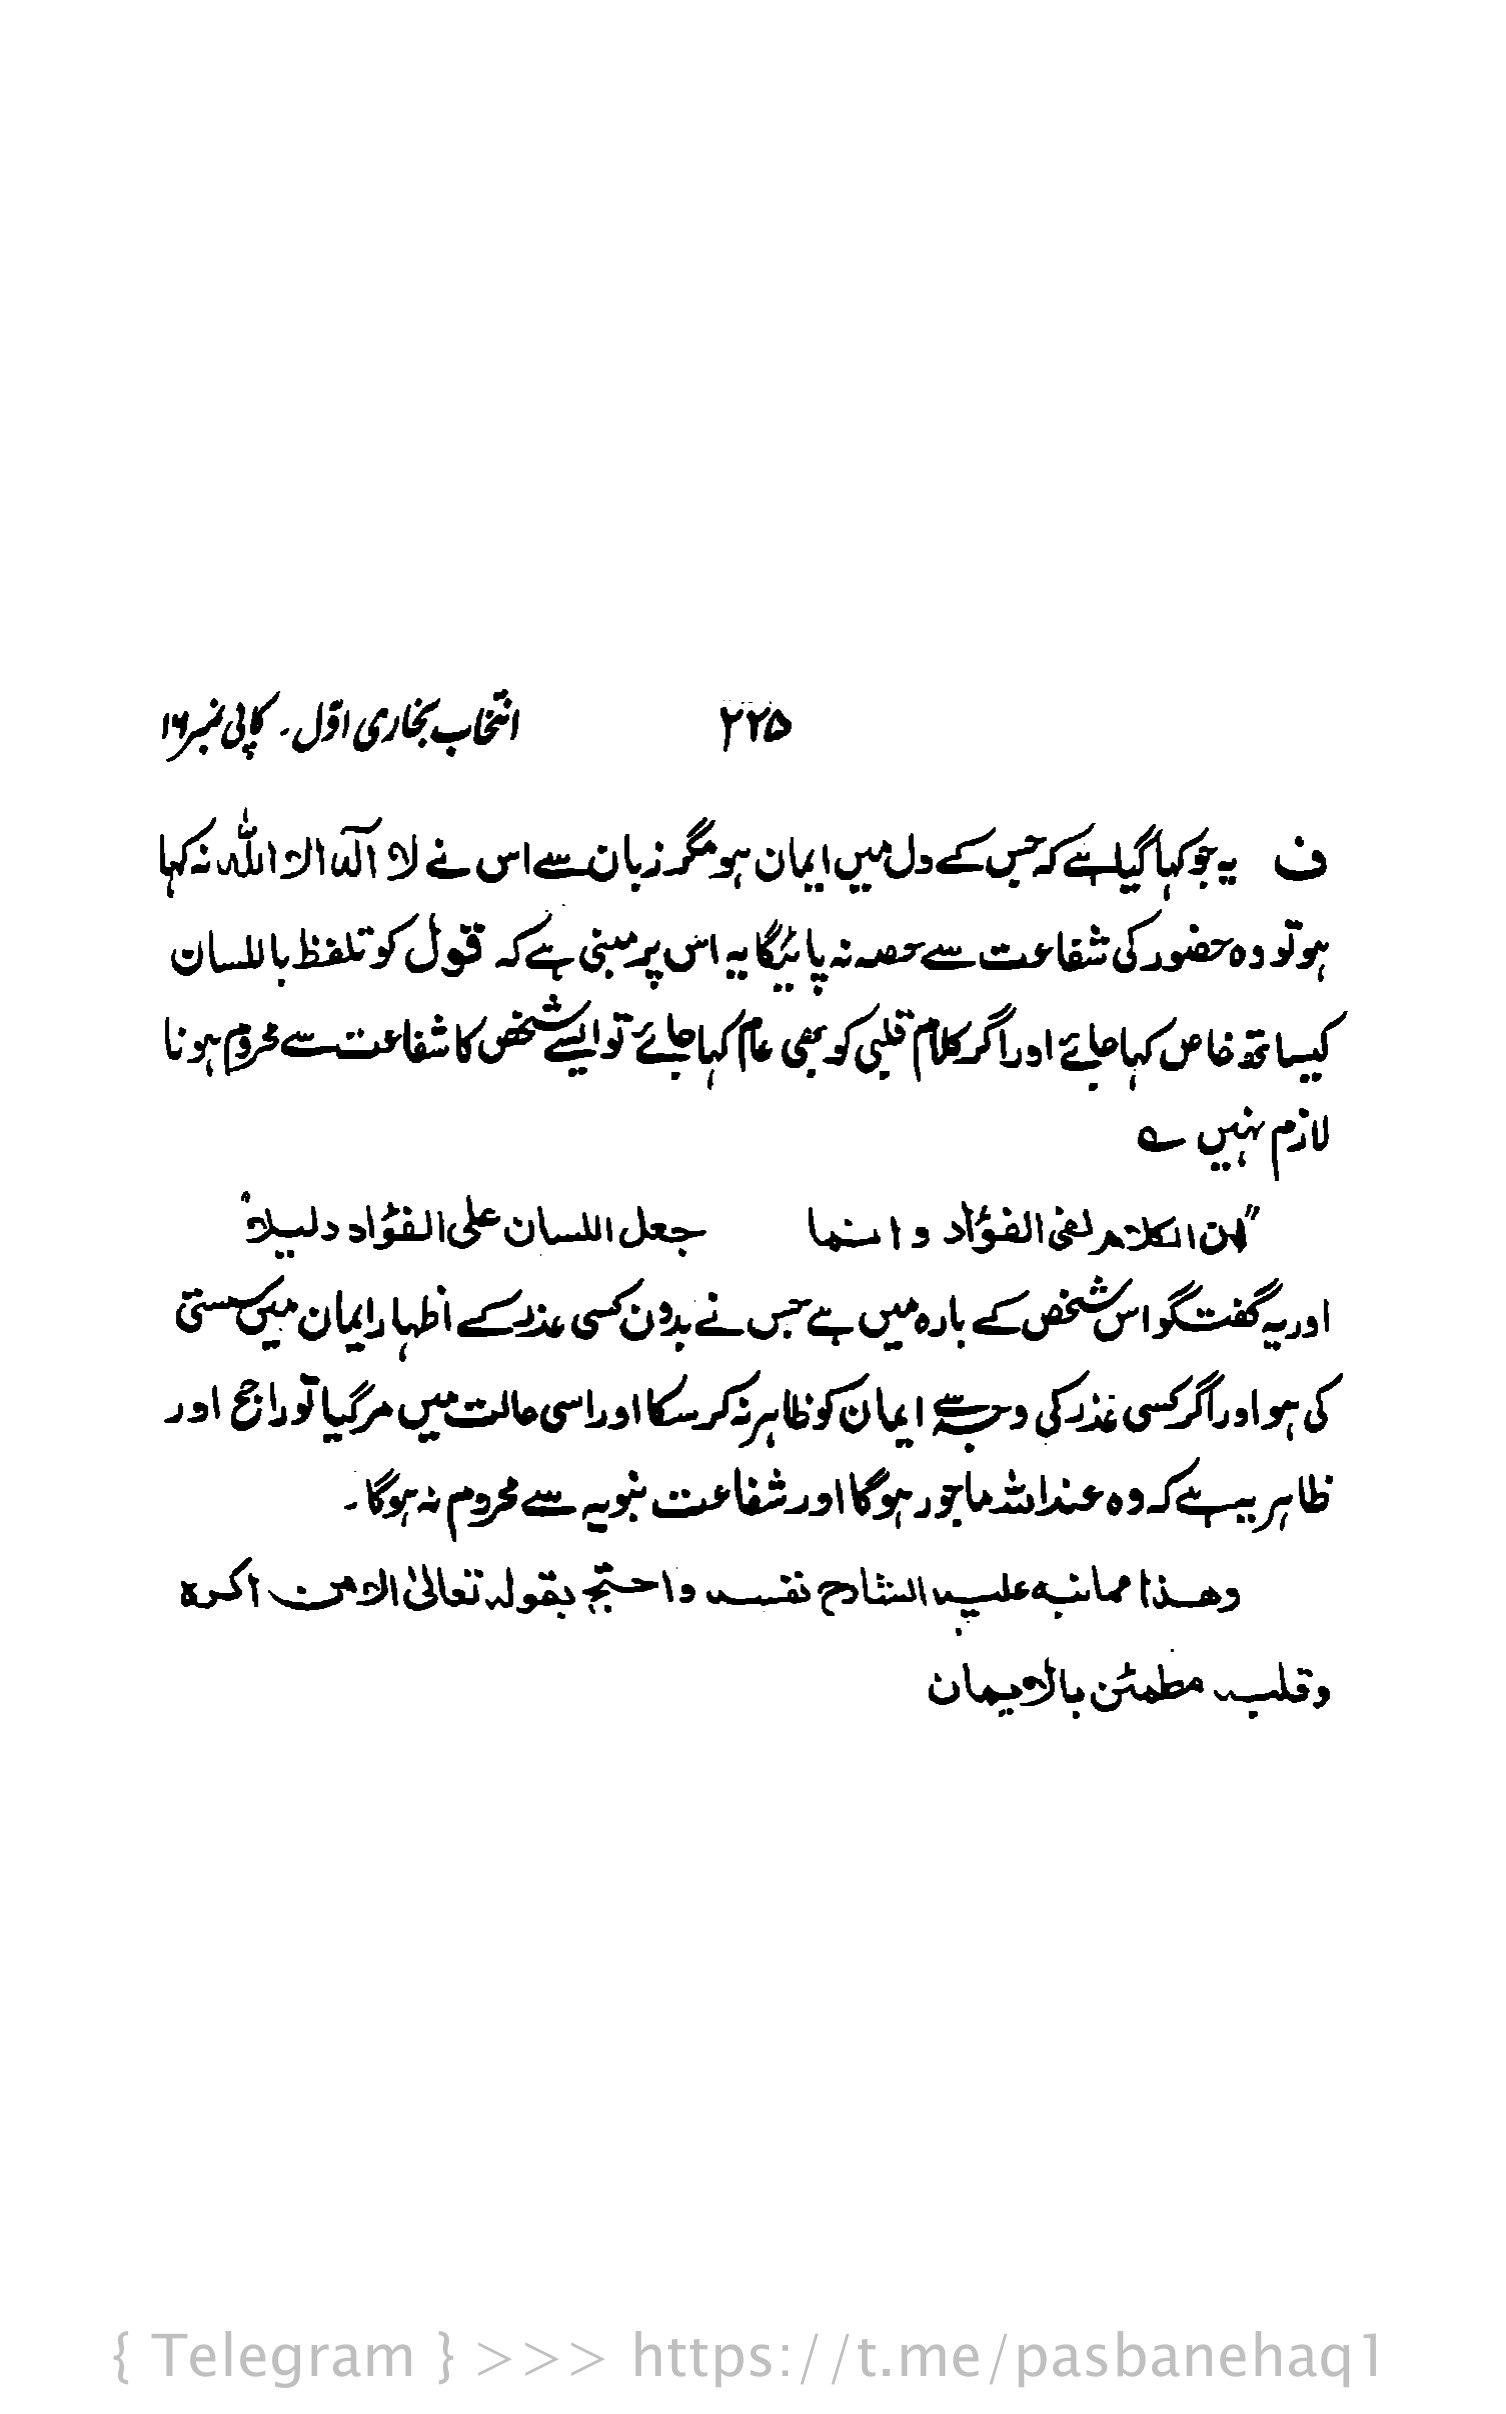 انتخاب بخاری اوّل۔ کاپی نمبر ۱۶ ۲۲۵
ف یہ جو کہا گیا ہے کہ جس کے دل میں ایمان ہو مگر زبان سے اس نے لا الٰہ الا اللہ نہ کہا
ہو تو وہ حضور کی شفاعت سے حصہ نہ پائیگا یہ اس پر مبنی ہے کہ قول کو تلفظ باللسان
کیساتھ خاص کہا جائے اور اگر کلام قلبی کو بھی عام کہا جائے تو ایسے شخص کا شفاعت سے محروم ہونا
لازم نہیں ؎
"ان الکلام لفی الفؤاد و انما جعل اللسان علی الفؤاد دلیلا"
اور یہ گفتگو اس شخص کے بارہ میں ہے جس نے بدون کسی عذر کے اظہار ایمان میں سستی
کی ہو اور اگر کسی عذر کی وجہ سے ایمان کو ظاہر نہ کر سکا اور اسی حالت میں مر گیا تو راجح اور
ظاہر یہ ہے کہ وہ عند اللہ ماجور ہوگا اور شفاعت نبویہ سے محروم نہ ہوگا۔
وھذا مما نبہ علیہ الشارح نفسہ واحتج بقولہ تعالیٰ الا من اکرہ
وقلبہ مطمئن بالایمان
{ Telegram } >>> https://t.me/pasbanehaq1